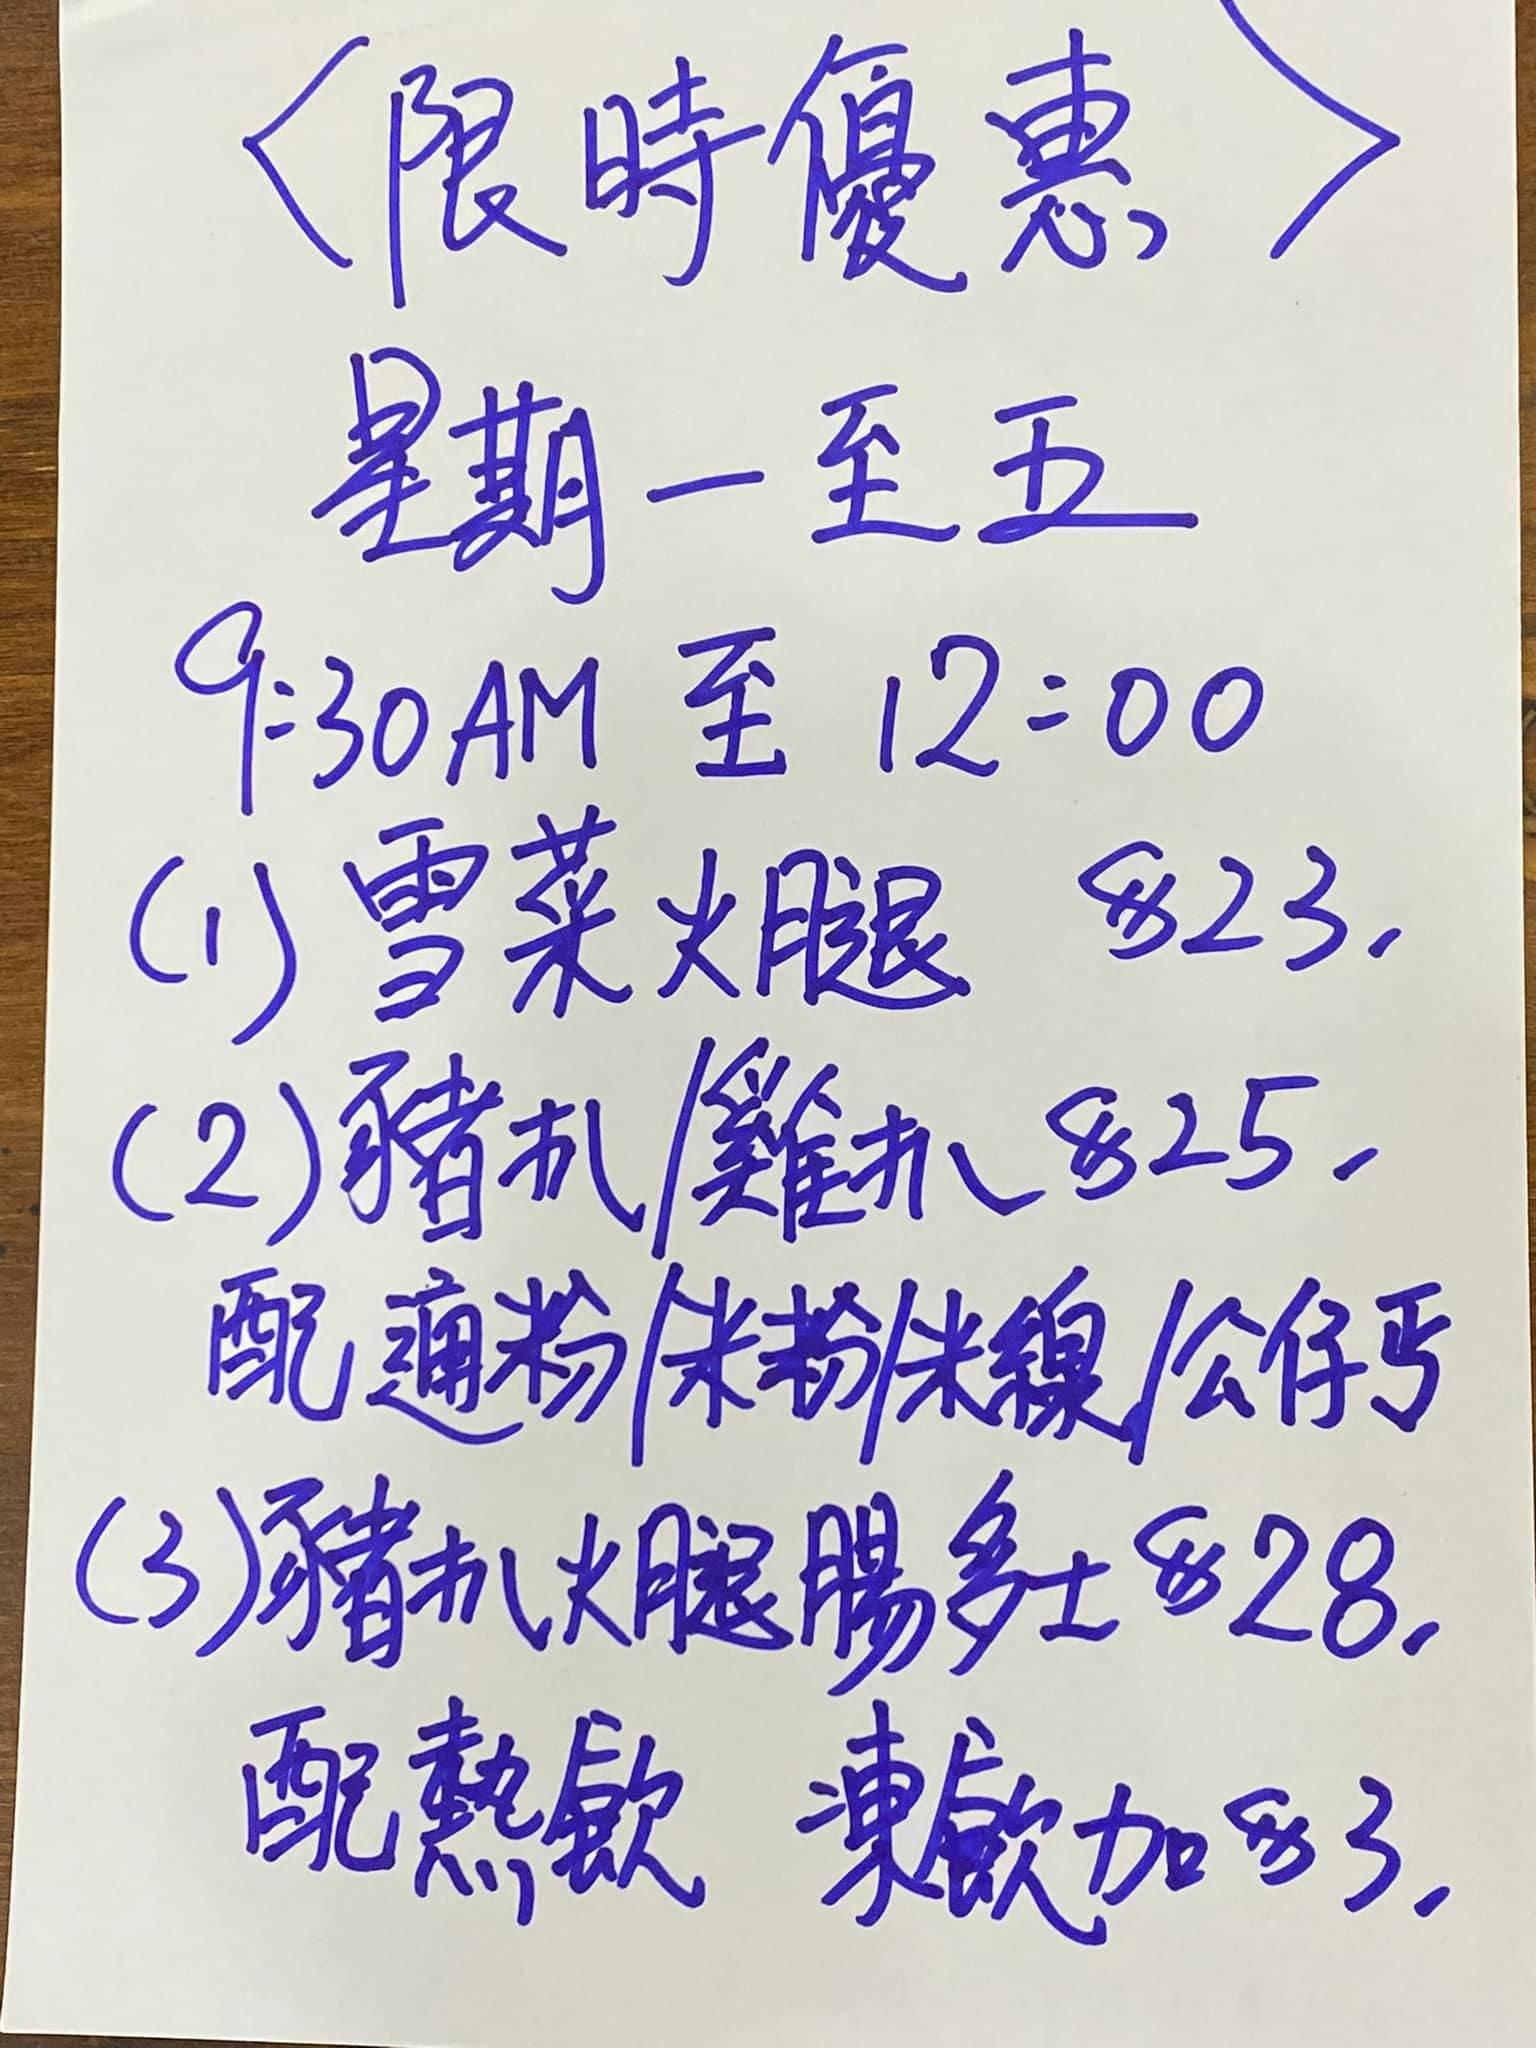 〈限時優惠〉
星期一至五
9:30AM 至 12:00
(1) 雪菜火腿 $23.
(2) 豬扒/雞扒 $25.
配通粉/米粉/米線/公仔丐
(3) 豬扒火腿腸多士 $28.
配熱飲 凍飲加$3.